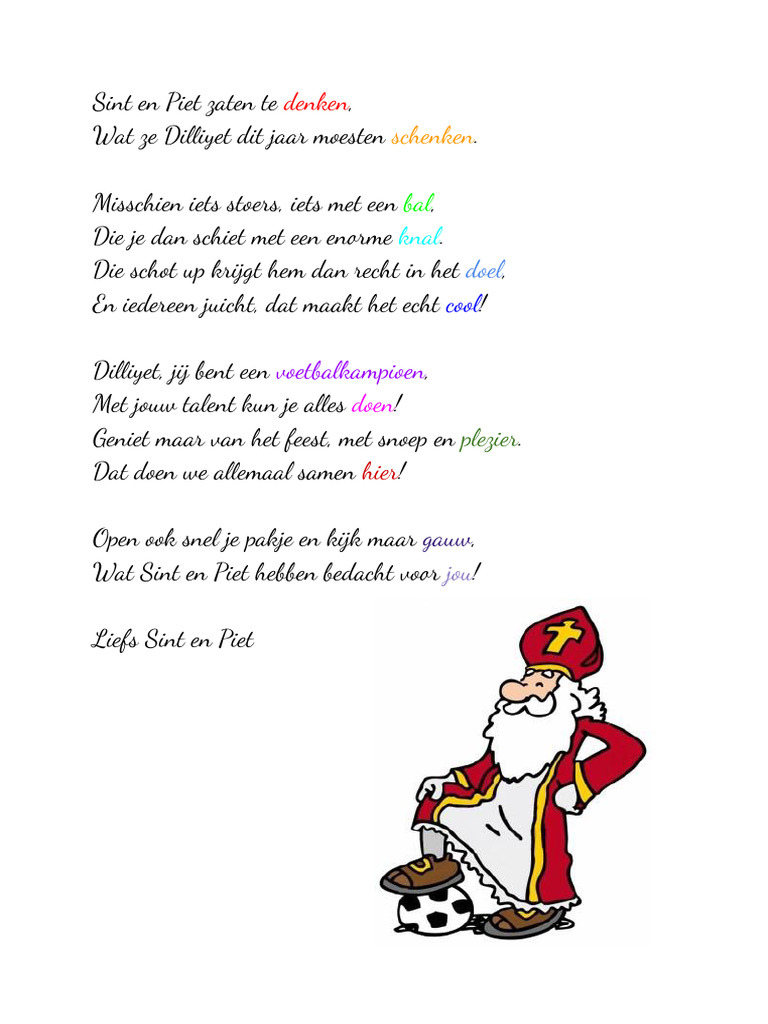 Sint en Piet zaten te denken,
Wat ze Dilliyet dit jaar moesten schenken.
Misschien iets stoers, iets met een bal,
Die je dan schiet met een enorme knal.
Die schot up krijgt hem dan recht in het doel,
En iedereen juicht, dat maakt het echt cool!
Dilliyet, jij bent een voetbalkampioen,
Met jouw talent kun je alles doen!
Geniet maar van het feest, met snoep en plezier.
Dat doen we allemaal samen hier!
Open ook snel je pakje en kijk maar gauw,
Wat Sint en Piet hebben bedacht voor jou!
Liefs Sint en Piet